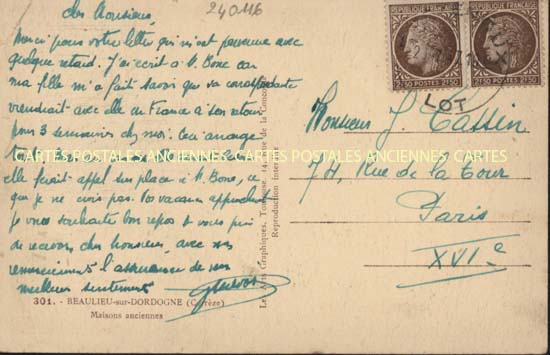 240116
cher Monsieur,
Merci pour votre lettre qui m'est parvenue avec
quelque retard. J'ai écrit à M. Bone car
ma fille m'a fait savoir que sa correspondante
viendrait avec elle en France à son retour
pour 3 semaines chez moi. Ceci arrange
CARTES POSTALES ANCIENNES CARTES POSTALES ANCIENNES CARTES
elle ferait appel sur place à M. Bone, ce
que je ne crois pas. Vos vacances approchent
je vous souhaite bon repos et vous prie
de recevoir, cher Monsieur, avec mes
remerciements l'assurance de mes
meilleurs sentiments
301. - BEAULIEU-sur-DORDOGNE (Corrèze)
Maisons anciennes
Reproduction interdite
RÉPUBLIQUE FRANÇAISE
2F50 POSTES 2F50
RÉPUBLIQUE FRANÇAISE
2F50 POSTES 2F50
LOT
Monsieur J. Tassin
74, Rue de la Tour
Paris
XVIe